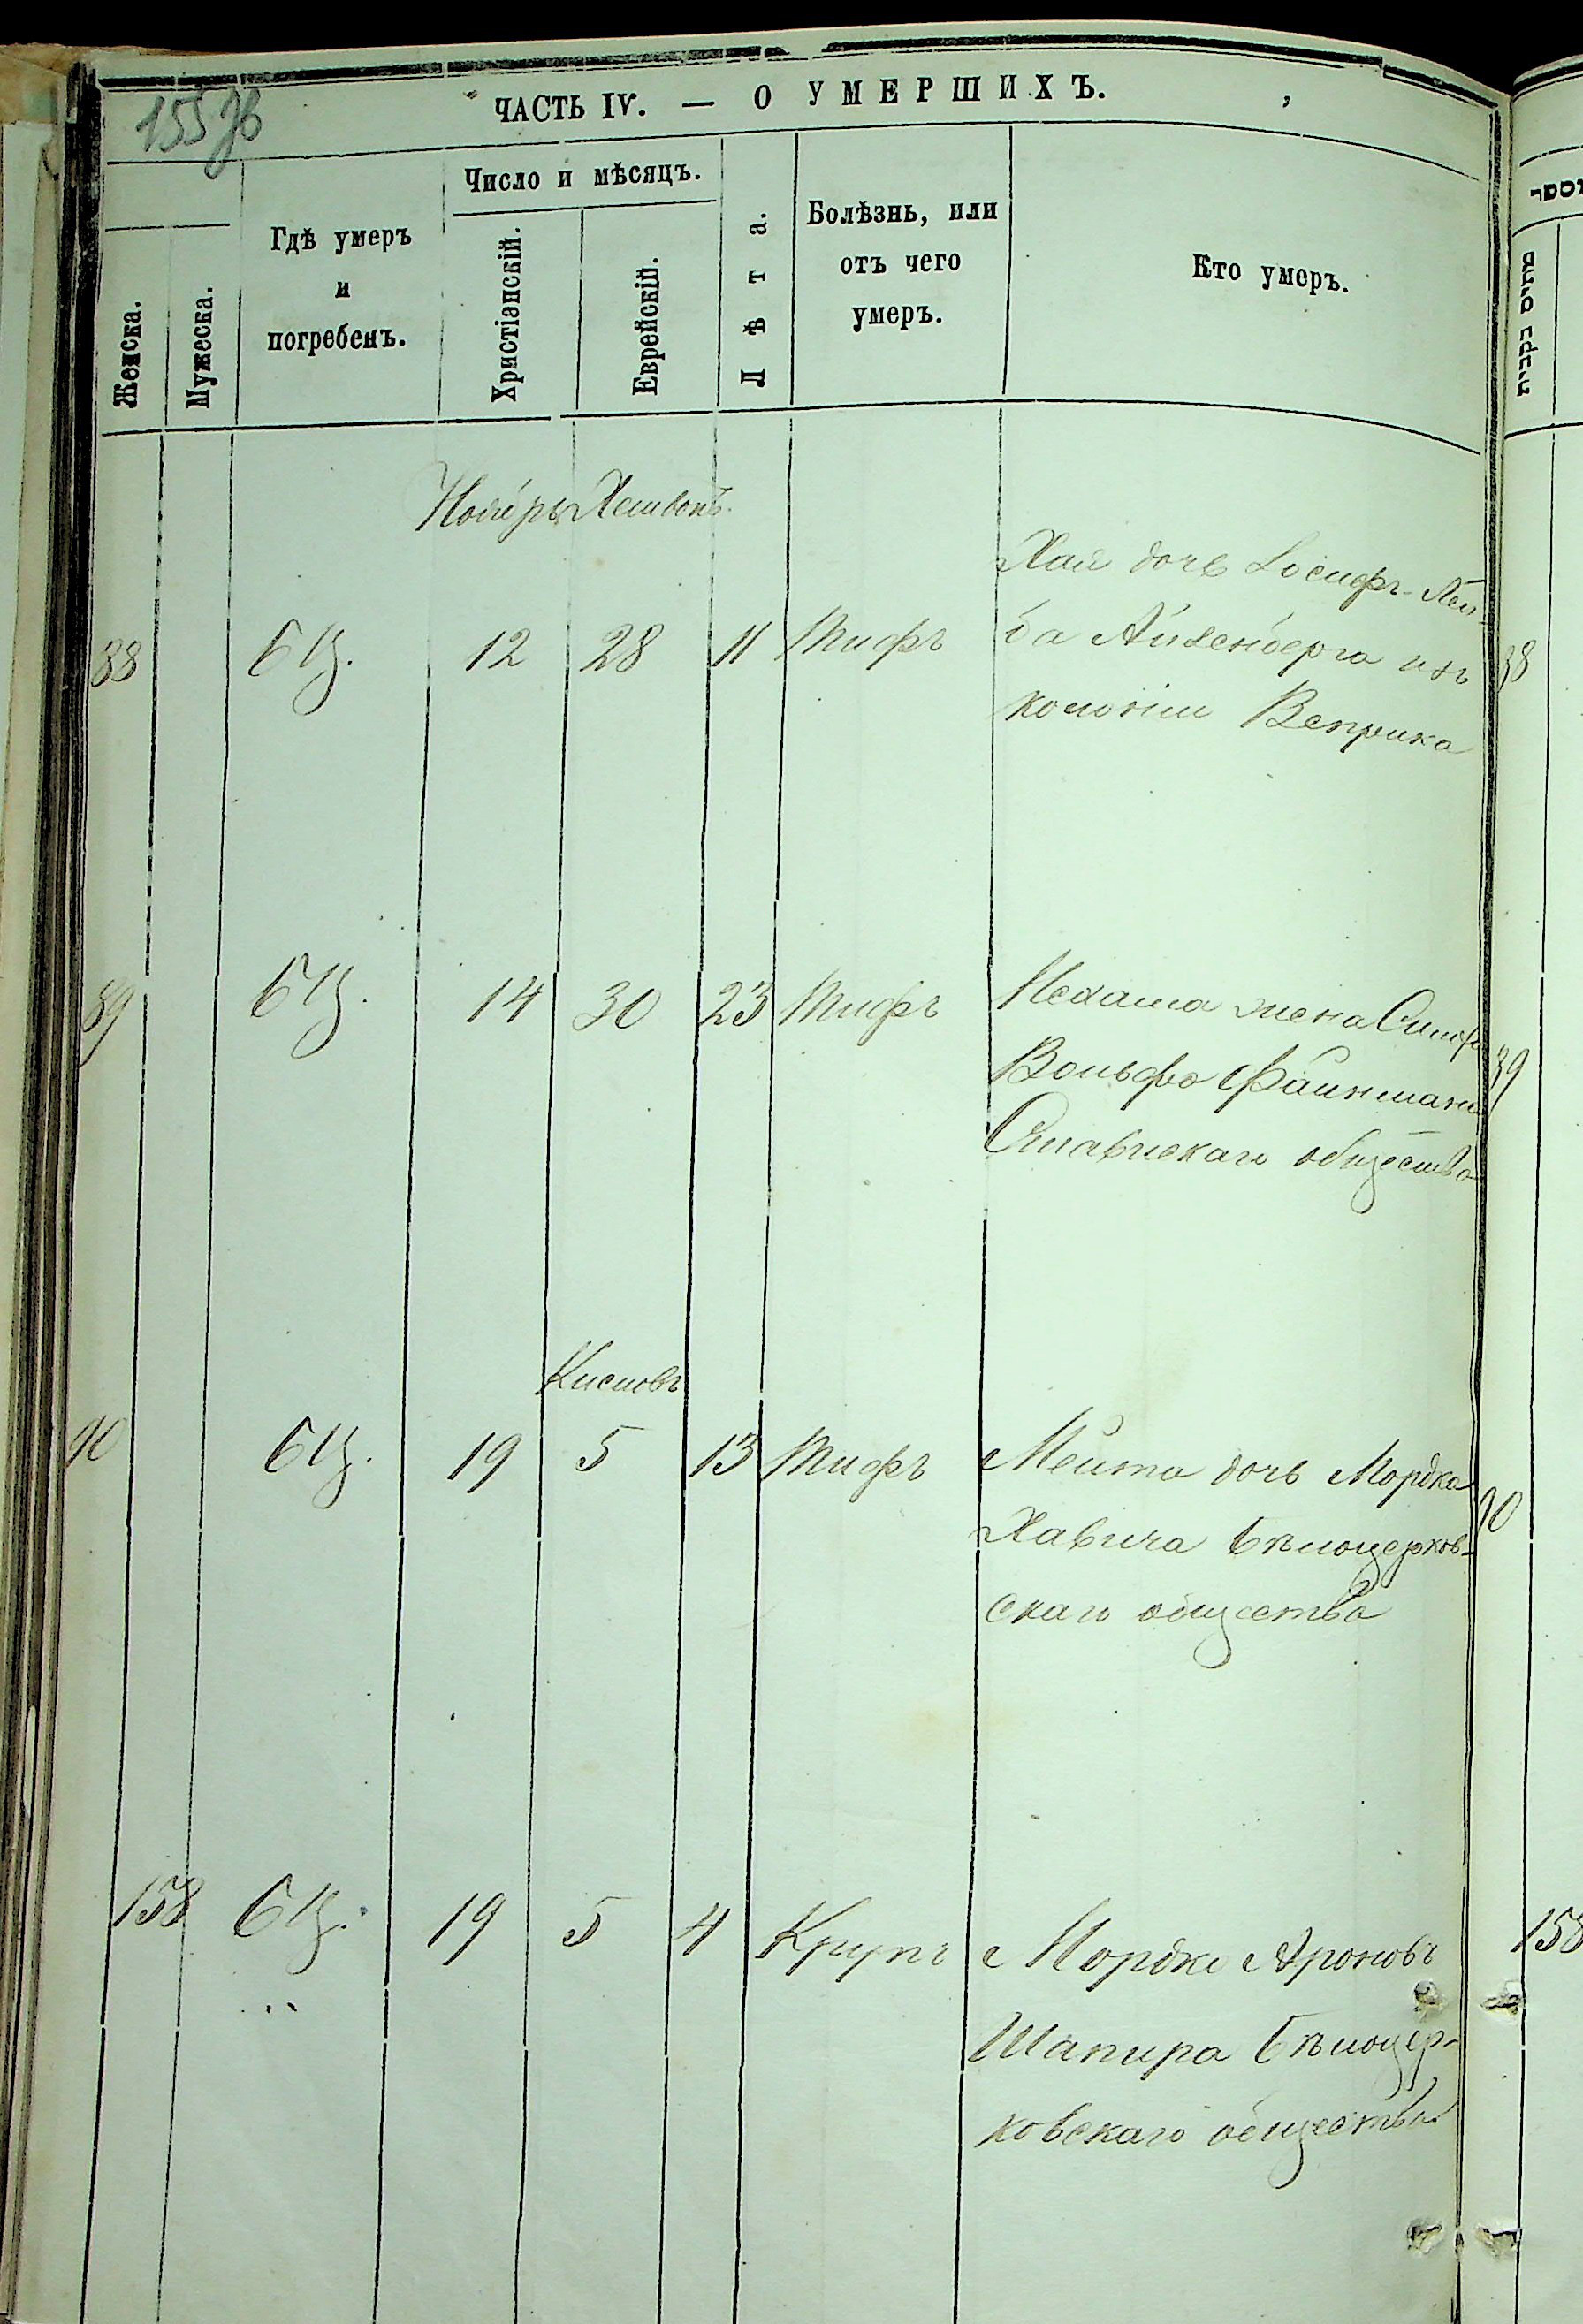 155 зв
ЧАСТЬ IV. — О УМЕРШИХЪ.
Женска.
Мужеска.
Гдѣ умеръ
и
погребенъ.
Число и мѣсяцъ.
Христіанскій.
Еврейскій.
Лѣта.
Болѣзнь, или
отъ чего
умеръ.
Кто умеръ.
Ноябрь Хешвонъ.
88 БЦ. 12 28 11 Тифъ Хая дочь Іосифъ-Лей-
ба Айзенберга изъ
колоніи Веприка
89 БЦ. 14 30 23 Тифъ Нехама жена
Вольфа Файнмана
Ставискаго общества
Кислевъ
90 БЦ. 19 5 13 Тифъ Мейта дочь Мордка
Хавича Бѣлоцерков-
скаго общества
158 БЦ. 19 5 4 Крупъ Мордко Ароновъ
Шапира Бѣлоцер-
ковскаго общества
מתים נקבות
90
158